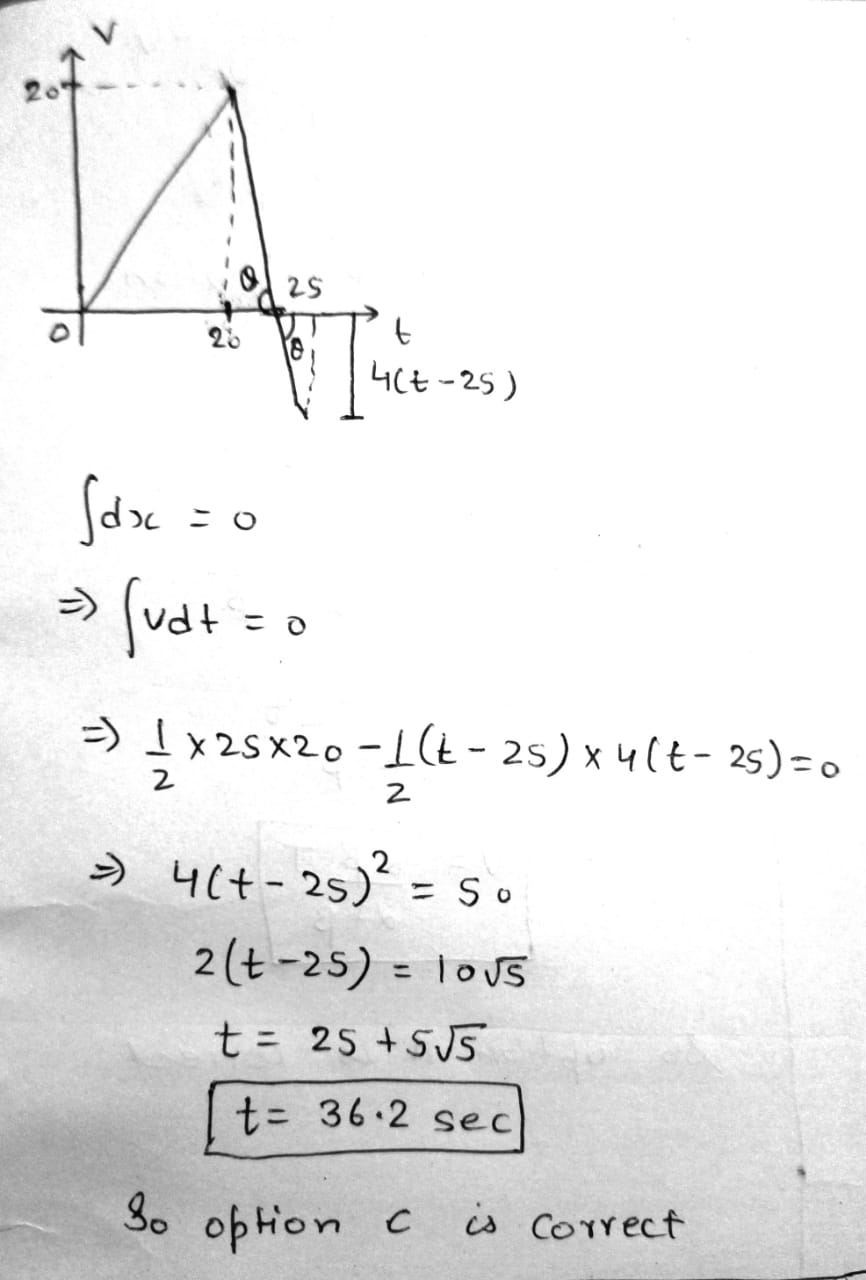 V
20
θ 25
0 20 θ t
4(t-25)
∫dx = 0
⇒ ∫vdt = 0
⇒ 1/2 x 25x20 - 1/2 (t - 25) x 4(t - 25) = 0
⇒ 4(t - 25)² = 50
2(t-25) = 10√5
t = 25 + 5√5
t = 36.2 sec
So option c is correct